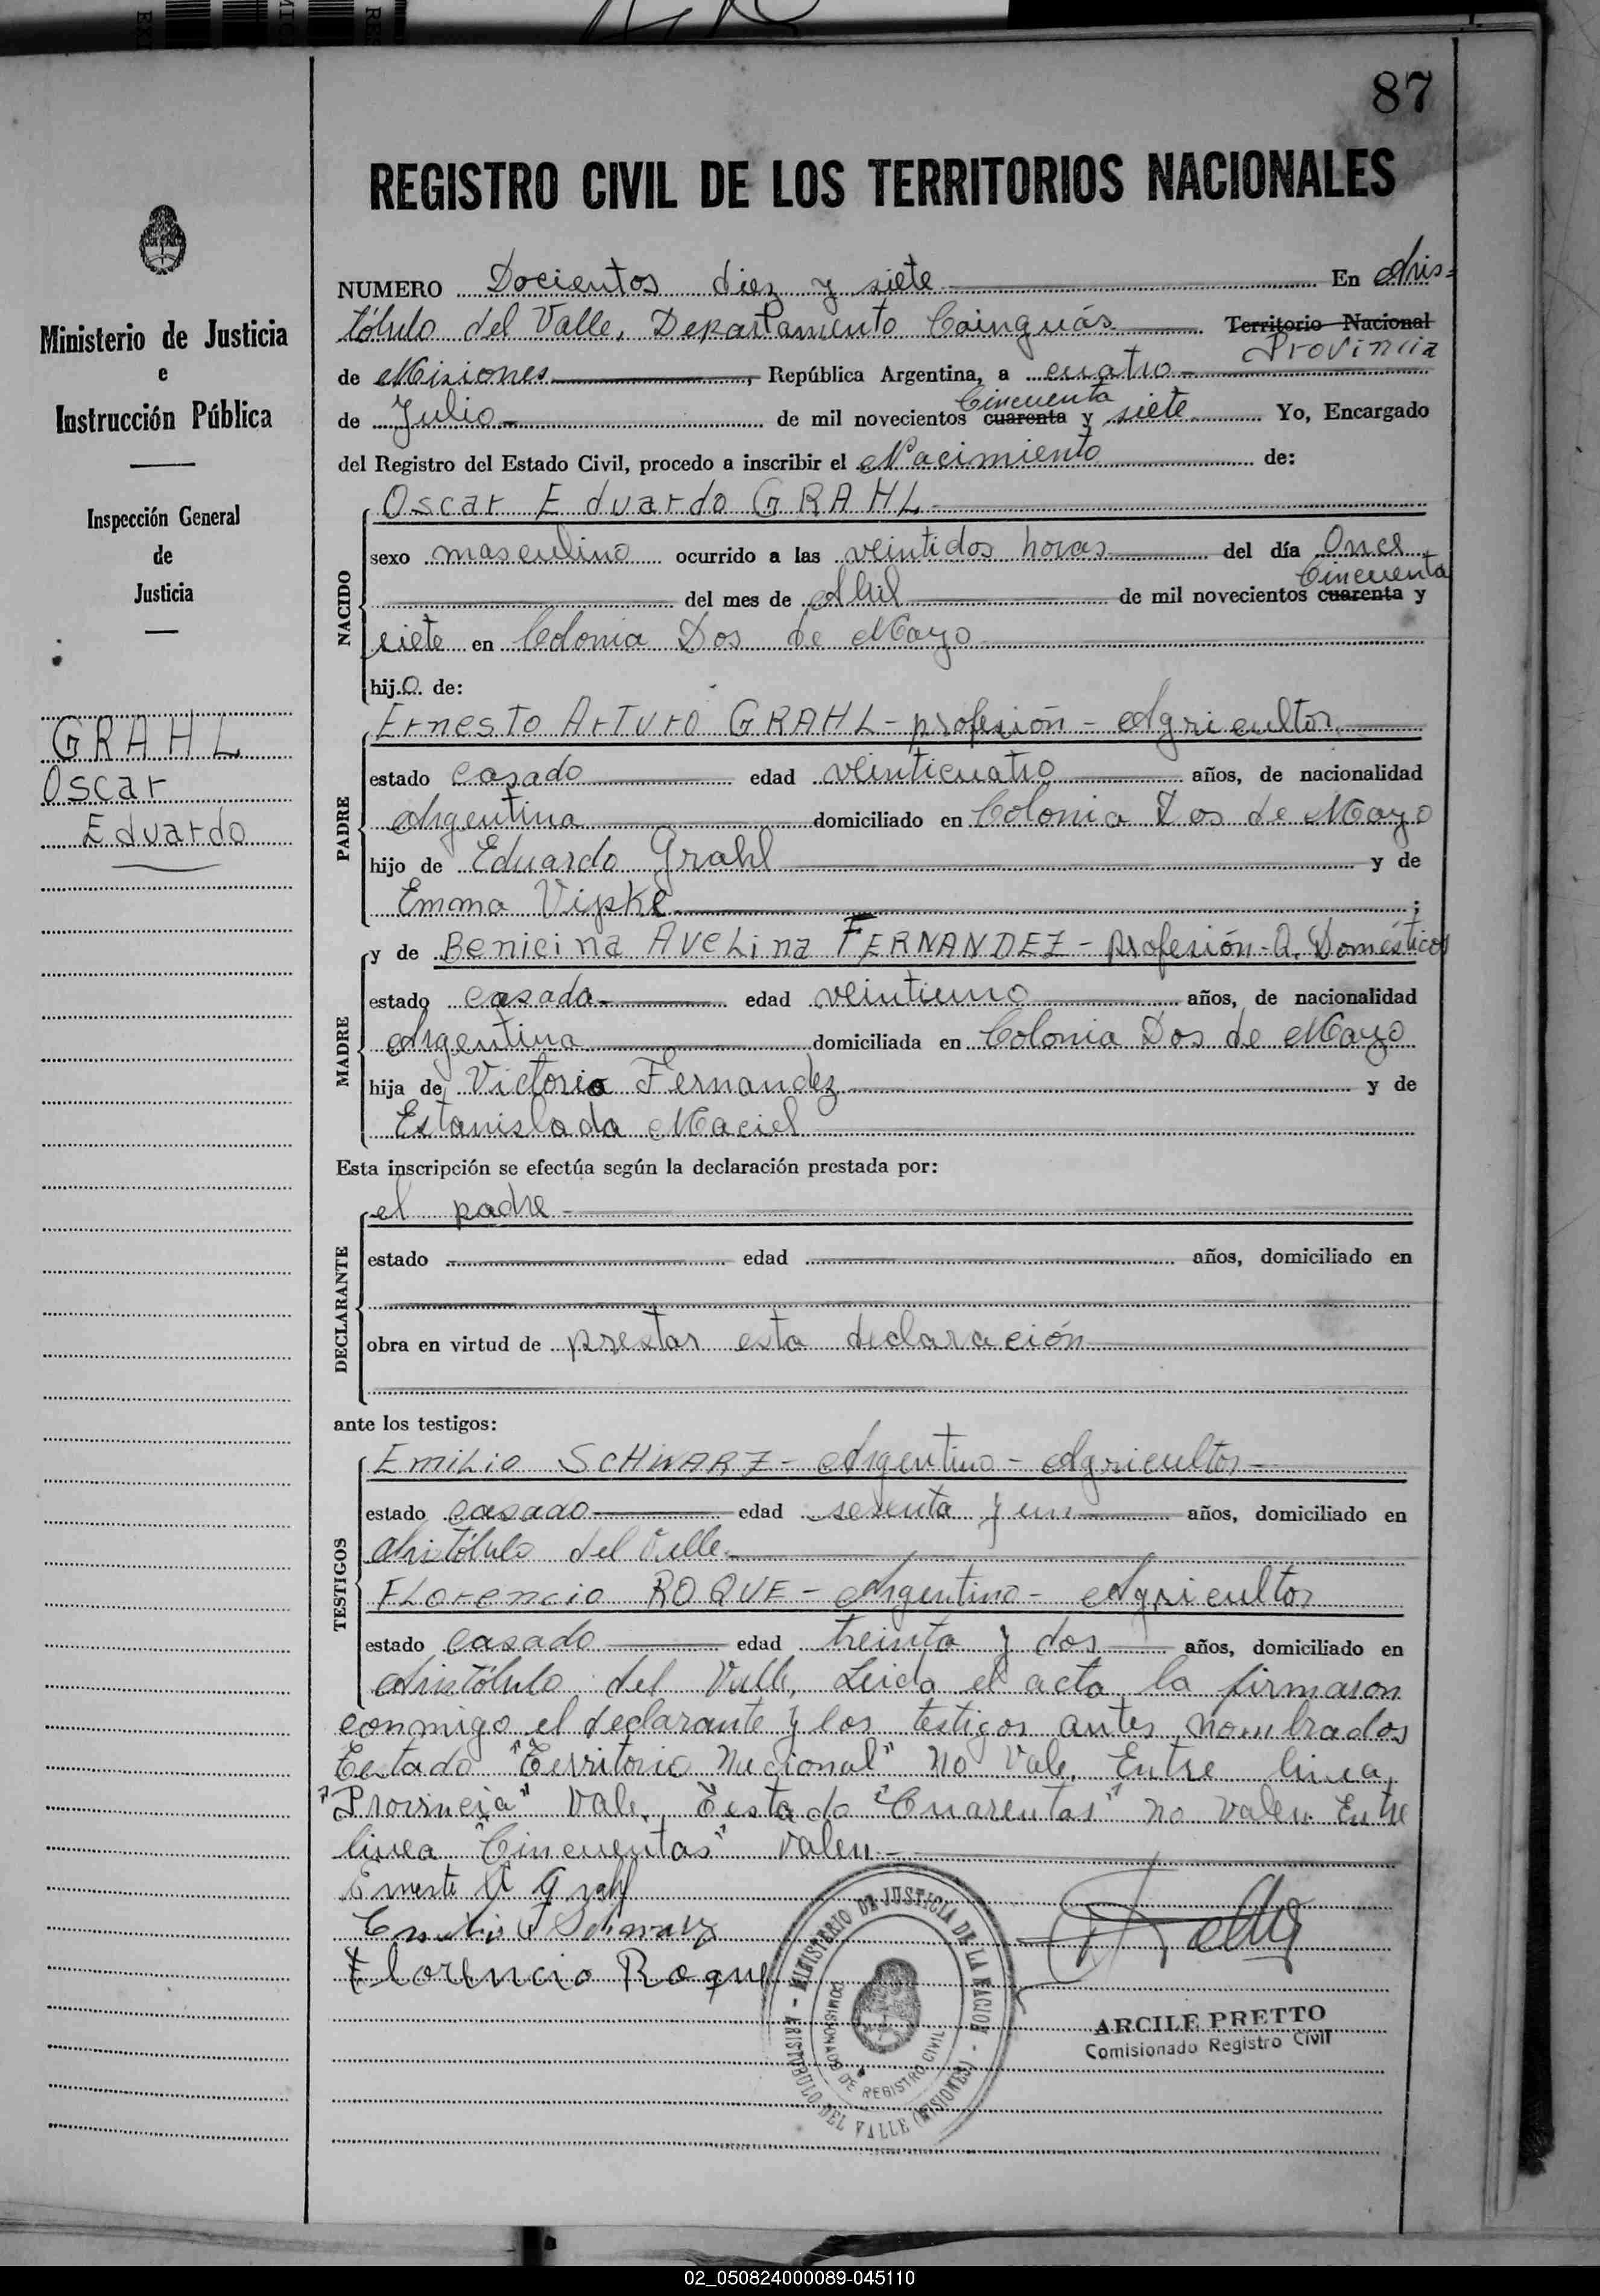 87
REGISTRO CIVIL DE LOS TERRITORIOS NACIONALES
Ministerio de Justicia
e
Instrucción Pública
Inspección General
de
Justicia
GRAHL
Oscar
Eduardo
NUMERO Docientos diez y siete En Aris=
tóbulo del Valle, Departamento Cainguás Territorio Nacional
Provincia
de Misiones, República Argentina, a cuatro
Cincuenta
de Julio de mil novecientos cuarenta y siete Yo, Encargado
del Registro del Estado Civil, procedo a inscribir el Nacimiento de:
NACIDO
Oscar Eduardo GRAHL
sexo masculino ocurrido a las veintidos horas del día Once
Cincuenta
del mes de Abril de mil novecientos cuarenta y
siete en Colonia Dos de Mayo
hijo de:
PADRE
Ernesto Arturo GRAHL - profesión - Agricultor
estado casado edad veinticuatro años, de nacionalidad
Argentina domiciliado en Colonia Dos de Mayo
hijo de Eduardo Grahl y de
Emma Vipke;
MADRE
y de Benicina Avelina FERNANDEZ - profesión - Q. Domésticos
estado casada edad veintiuno años, de nacionalidad
Argentina domiciliada en Colonia Dos de Mayo
hija de Victorio Fernandez y de
Estanislada Maciel
Esta inscripción se efectúa según la declaración prestada por:
DECLARANTE
el padre
estado edad años, domiciliado en
obra en virtud de prestar esta declaración
ante los testigos:
TESTIGOS
Emilio SCHWARZ - Argentino - Agricultor
estado casado edad sesenta y un años, domiciliado en
Aristóbulo del Valle
Florencio ROQUE - Argentino - Agricultor
estado casado edad treinta y dos años, domiciliado en
Aristóbulo del Valle, Leida el acta la firmaron
conmigo el declarante y los testigos antes nombrados
Testado "Territorio Nacional" no vale. Entre linea,
"Provincia" Vale. Testado "Cuarentas" no valen Entre
linea "Cincuentas" valen
Ernesto A Grahl
Emilio Schwarz
Florencio Roque
- MINISTERIO DE JUSTICIA DE LA NACION -
ARISTOBULO DEL VALLE (MISIONES)
COMISIONADO DE REGISTRO CIVIL
ARCILE PRETTO
Comisionado Registro Civil
02_050824000089-045110